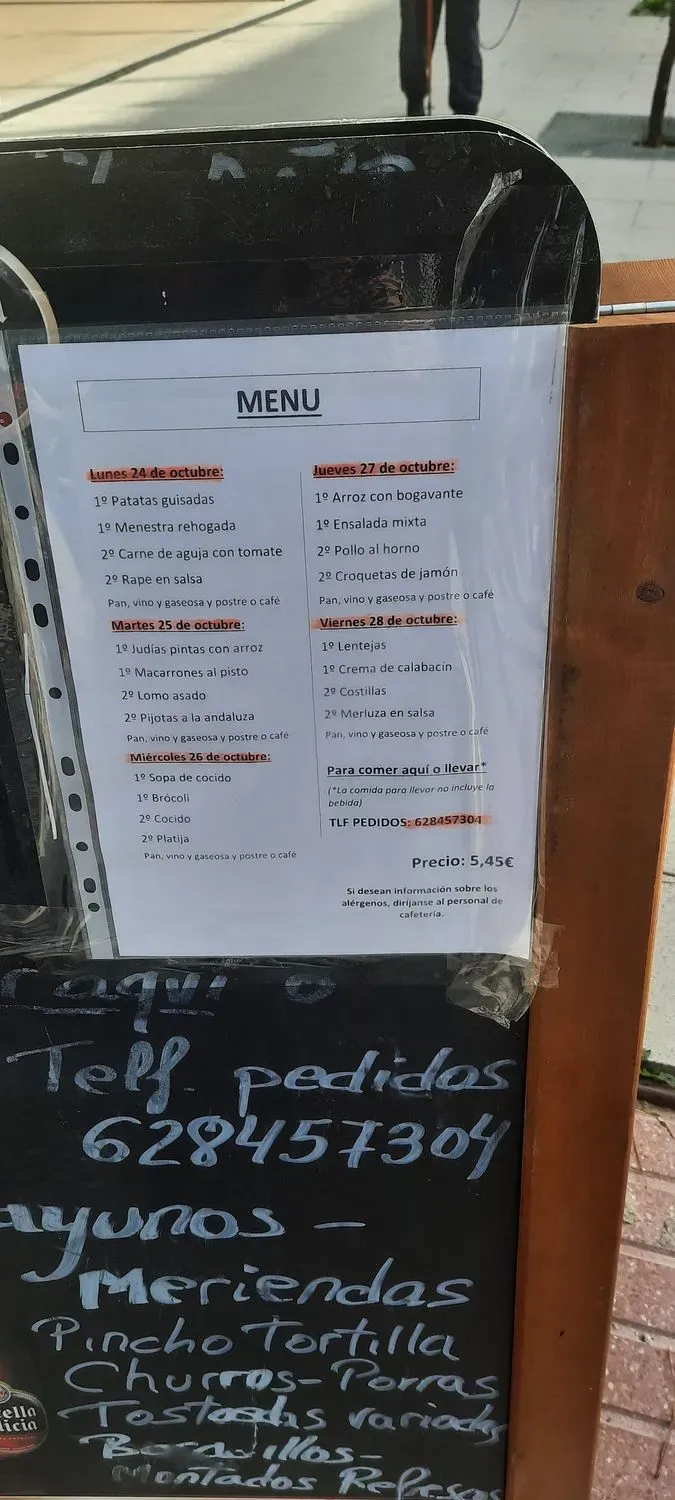 MENU
Lunes 24 de octubre:
1º Patatas guisadas
1º Menestra rehogada
2º Carne de aguja con tomate
2º Rape en salsa
Pan, vino y gaseosa y postre o café
Martes 25 de octubre:
1º Judías pintas con arroz
1º Macarrones al pisto
2º Lomo asado
2º Pijotas a la andaluza
Pan, vino y gaseosa y postre o café
Miércoles 26 de octubre:
1º Sopa de cocido
1º Brócoli
2º Cocido
2º Platija
Pan, vino y gaseosa y postre o café
Jueves 27 de octubre:
1º Arroz con bogavante
1º Ensalada mixta
2º Pollo al horno
2º Croquetas de jamón
Pan, vino y gaseosa y postre o café
Viernes 28 de octubre:
1º Lentejas
1º Crema de calabacín
2º Costillas
2º Merluza en salsa
Pan, vino y gaseosa y postre o café
Para comer aquí o llevar*
(*La comida para llevar no incluye la
bebida)
TLF PEDIDOS: 628457304
Precio: 5,45€
Si desean información sobre los
alérgenos, diríjanse al personal de
cafetería.
r aquí o
Telf. pedidos
628457304
ayunos –
Meriendas
Pincho Tortilla
Churros - Porras
Tostadas variadas
Montados Refrescos
ella
licia